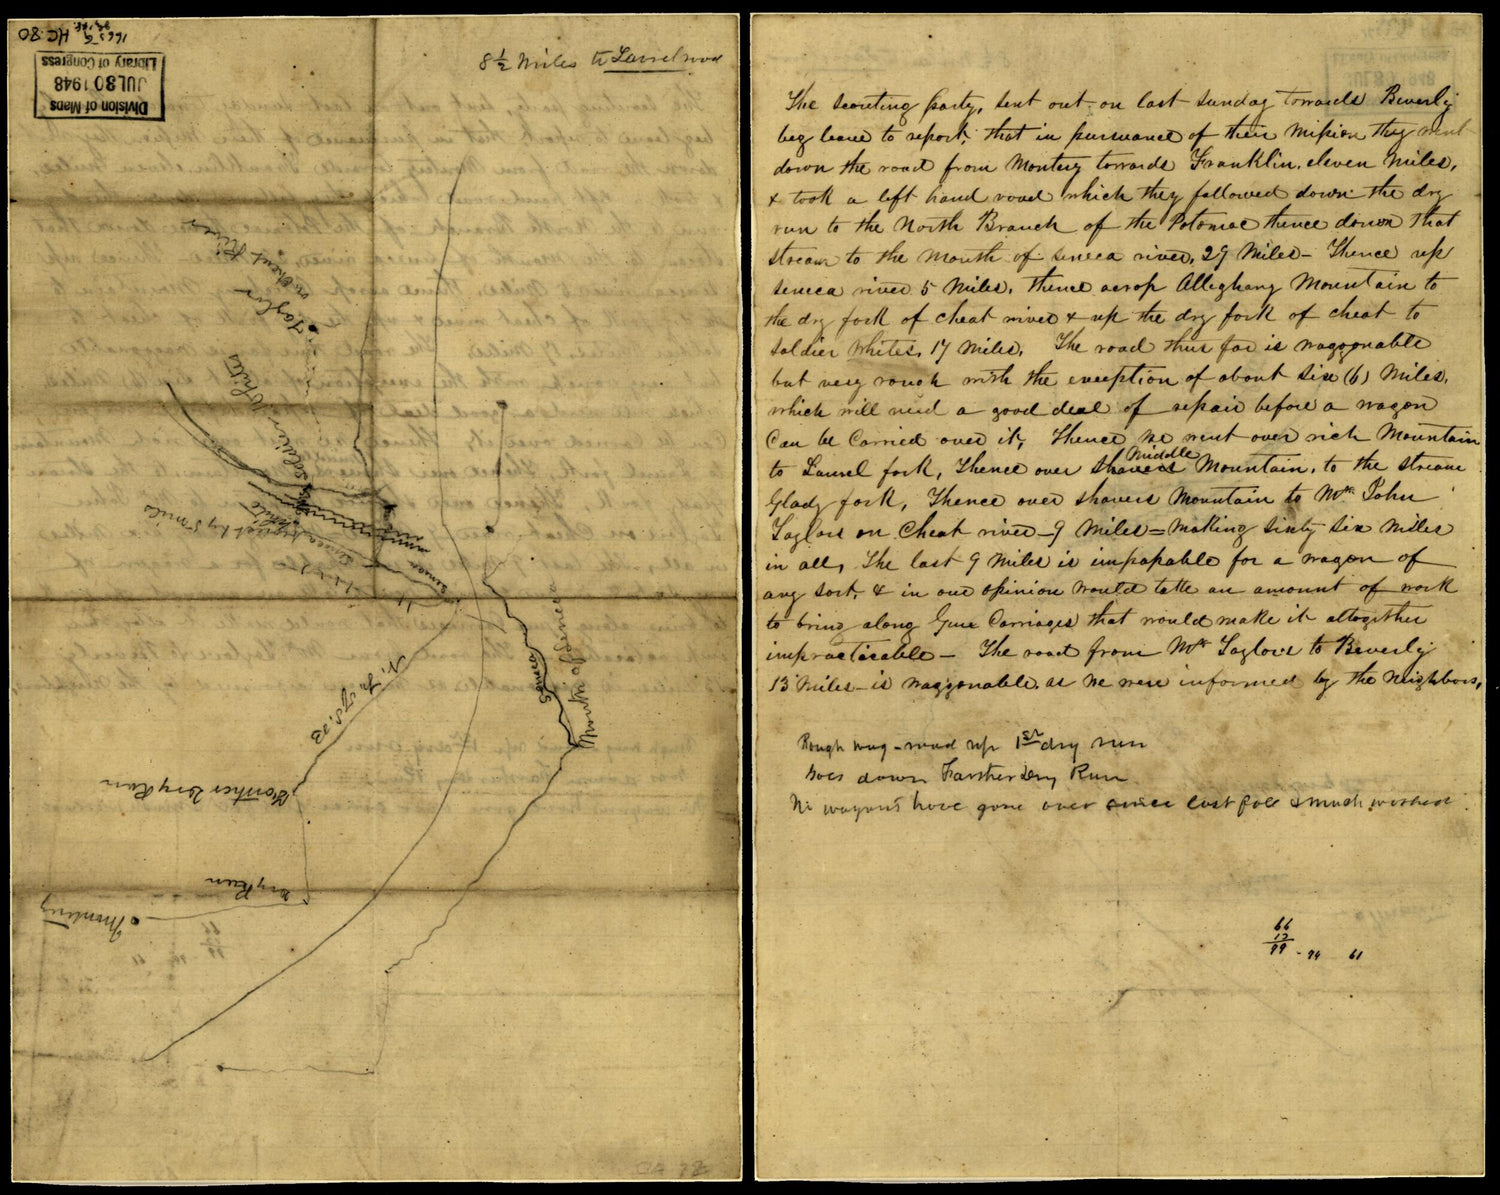 8 1/2 Miles to Laurel
1665
HC 80
Division of Maps
JUL 30 1948
Library of Congress
Taylor
on Cheat River
Soldier Whites
Seneca
Mouth of Seneca
N. Fk
Farther Dry Run
Dry Run
Monterey
The scouting party, sent out on last sunday towards Beverly
beg leave to report, that in pursuance of their Mission they went
down the road from Montery towards Franklin, eleven Miles,
& took a left hand road which they followed down the dry
run to the North Branch of the Potomac thence down that
stream to the Mouth of seneca river, 29 Miles – Thence up
Seneca river 5 Miles, thence across Alleghany Mountain to
the dry fork of Cheat river & up the dry fork of Cheat to
Soldier Whites, 17 Miles. The road thus far is waggonable
but very rough with the exception of about six (6) Miles,
which will need a good deal of repair before a wagon
Can be Carried over it, Thence we went over rich Mountain
to Laurel fork, Thence over Shavers Middle Mountain, to the stream
Glady fork, Thence over shavers Mountain to Mr. John
Taylors on Cheat river – 9 Miles = making sixty six Miles
in all, The last 9 Miles is impassable for a wagon of
any sort, & in our opinion would take an amount of work
to bring along Gun Carriages that would make it altogether
impracticable – The road from Mr. Taylors to Beverly
13 Miles – is waggonable, as we were informed by the Neighbors,
Rough wag-road up 1st dry run
Goes down Farther Dry Run
No wagons have gone over since last fall & much washed
66
13
79 - 74 61